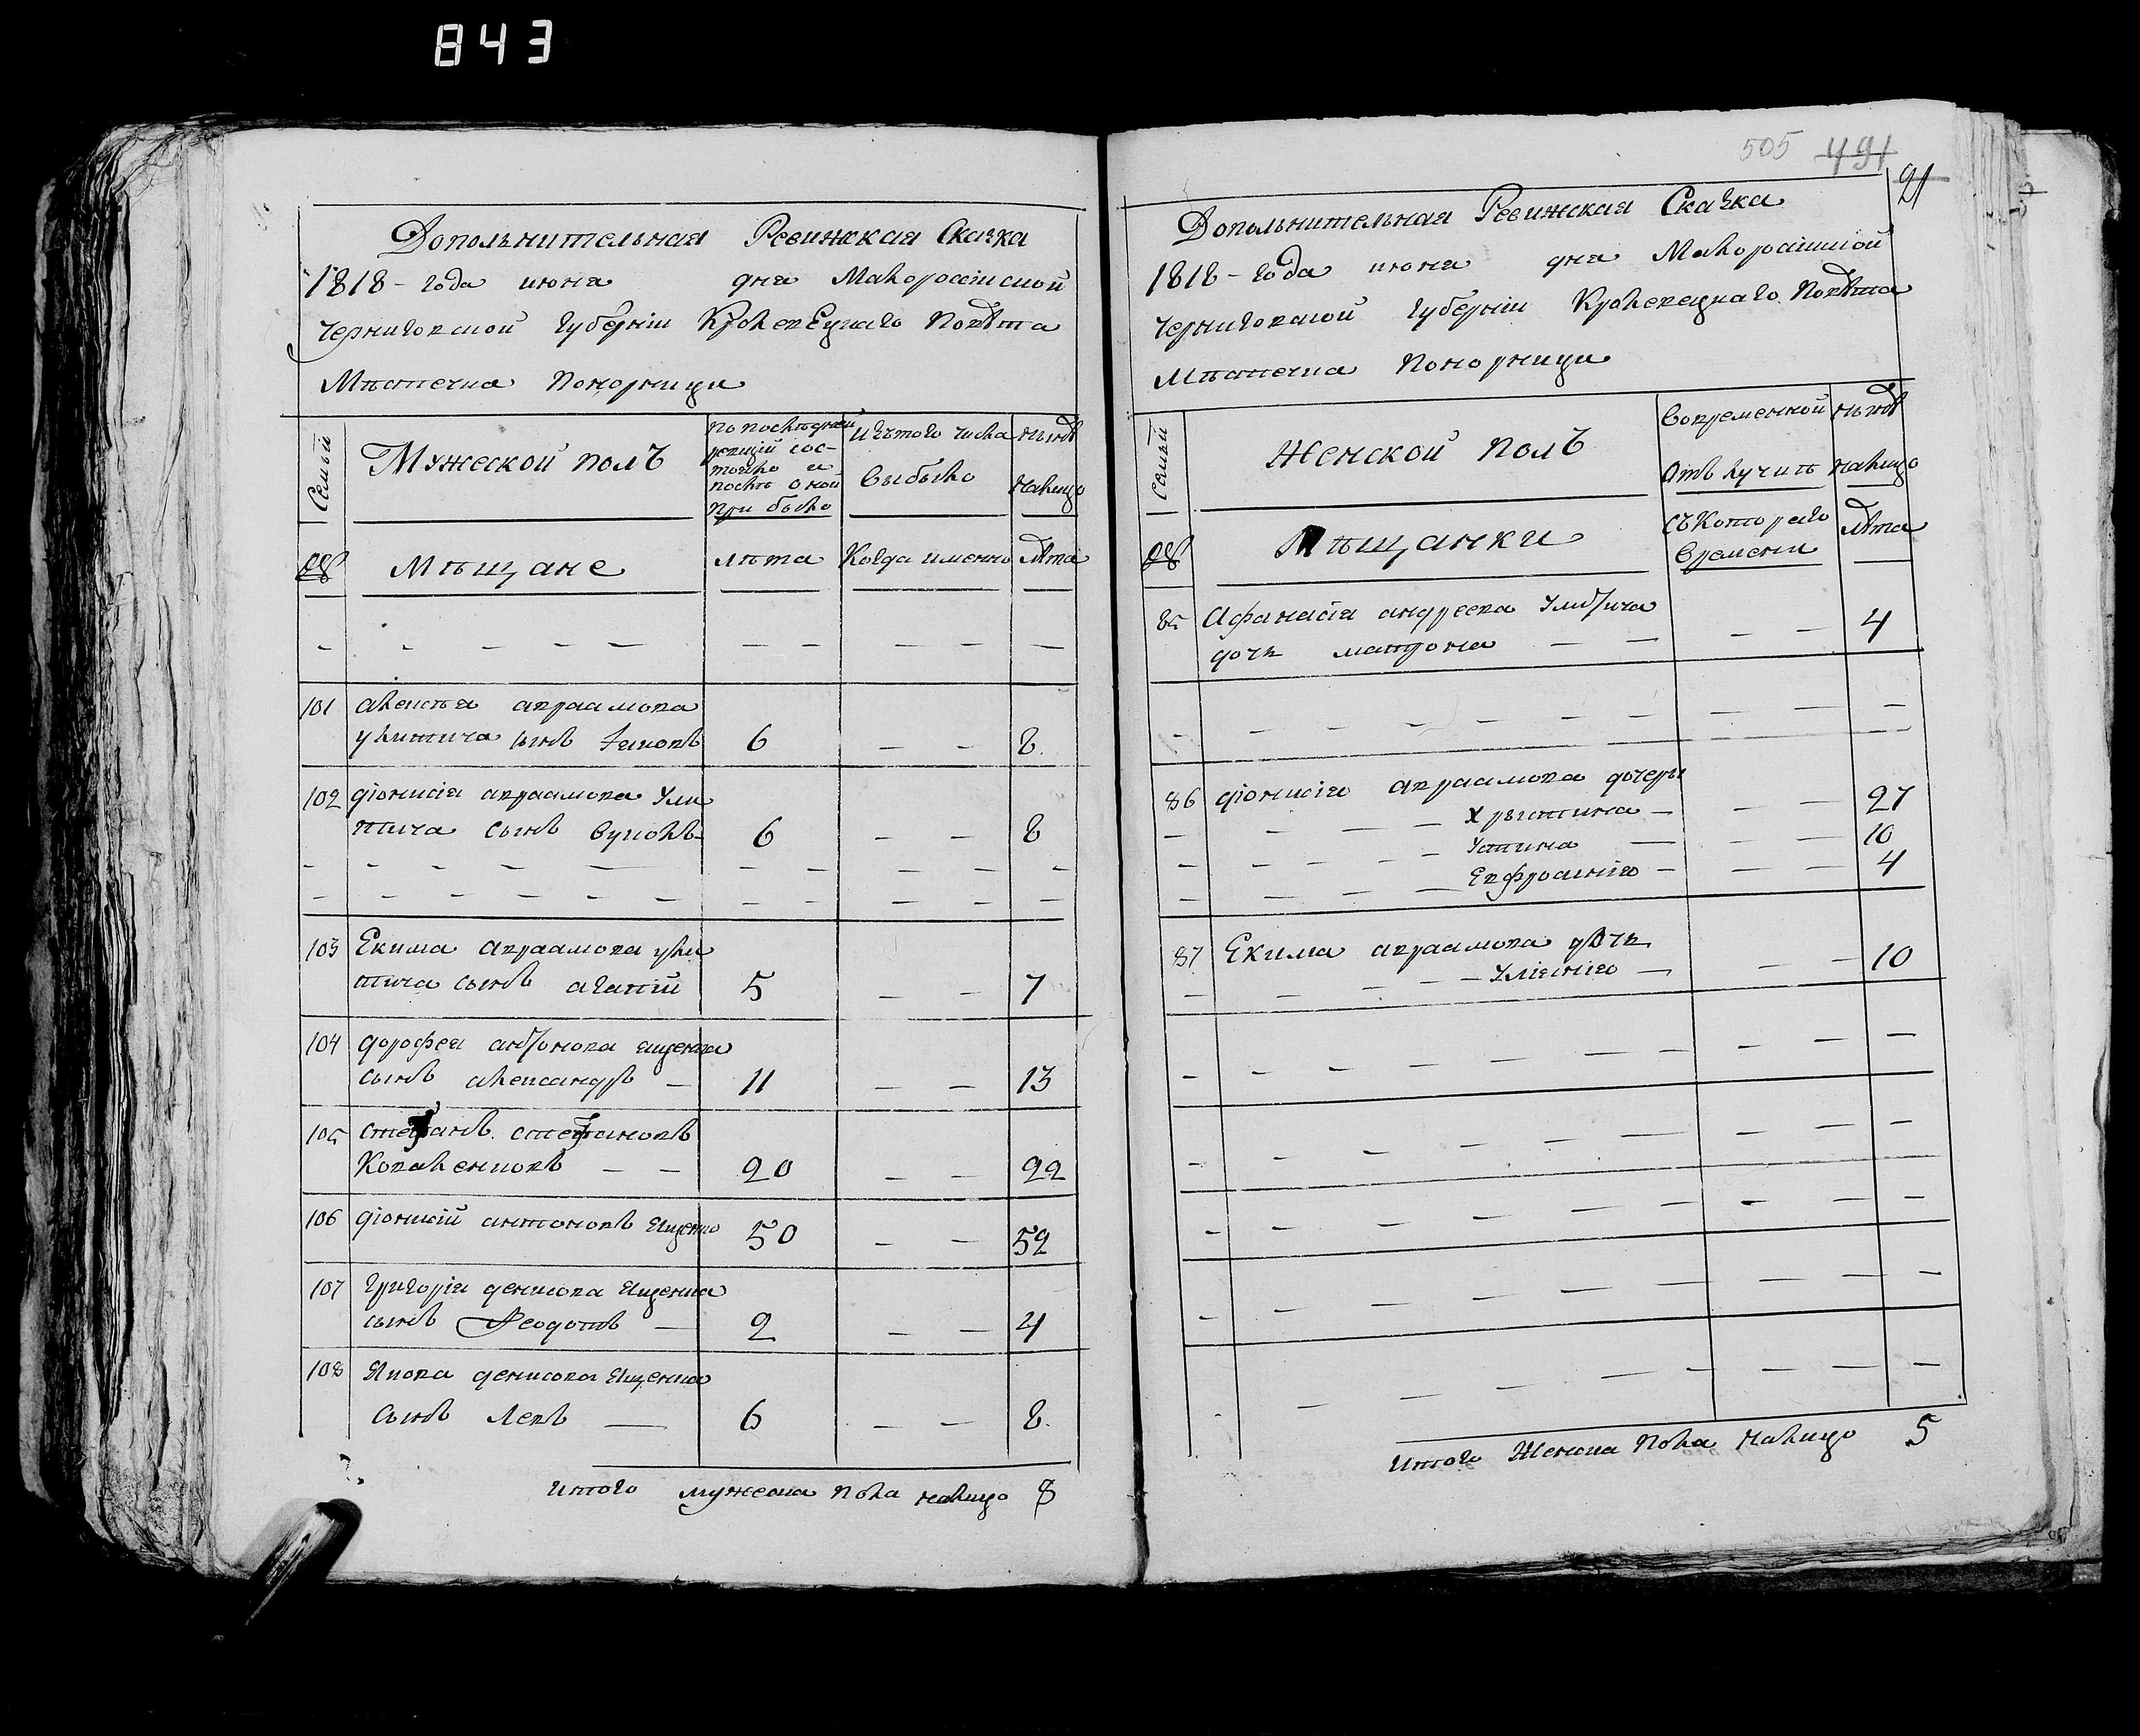 843
Дополънителъная Ревижская Сказка
1818 - года июня дня Малороссійской
Черниговской Губерніи Кролевецкаго Повѣта
Мѣстечка Понорници
Семьи
Мужеской полъ
по последней
ревизіи сос-
тояло и
послѣ оной
прибыло
Изъ того числа
выбыло
нынѣ
налицо
№
Мѣщане
лѣта
Когда имянно
лѣта
101 алексѣя авраамова
сынъ Яковъ 6 - - 8.
102 діонисія авраамова Ули
тича сынъ Вуколъ 6 - - 8
103 Екима авраамова ули
тича сынъ агапій 5 - - 7
104 дорофея антонова ященка
сынъ александръ - 11 - - 13
105 стефанъ стефановъ
Коваленковъ - - 20 - - 22
106 діонисій антоновъ Ященко 50 - - 52
107 григорія денисова Ященка
сынъ Феодотъ - 2 - - 4
108 Якова денисова Ященка
сынъ Левъ - 6 - - 8.
итого мужеска пола налицо 8
505 491
91
Дополънителъная Ревижская Сказка
1818 - года июня дня Малоросійской
Черниговской Губерніи Кролевецкаго Повѣта
Мѣстечка Понорници
Семьи
Женской полъ
Вовременной
отълучкѣ
нынѣ
налицо
№
Мѣщанки
съ Котораго
времени
лѣта
85 Афанасія андреева Улитича
дочь матрона - - - - 4
86 діонисія авраамова дочери
Христина - - - 27
Устина - - - 10
Евфросинія - - - 4
87 Екима авраамова дочь
Улияния - - - 10
итого Женска пола налицо 5